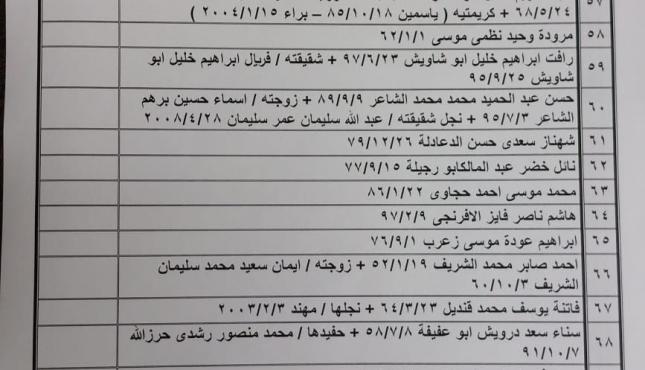 ٥٧
٦٨/٥/٢٤ + كريمتيه ( ياسمين ٨٥/١٠/١٨ – براء ٢٠٠٤/١/١٥ )
٥٨ مرودة وحيد نظمى موسى ٦٢/١/١
٥٩ رافت ابراهيم خليل ابو شاويش ٩٧/٦/٢٣ + شقيقته / فريال ابراهيم خليل ابو
شاويش ٩٥/٩/٢٥
٦٠ حسن عبد الحميد محمد محمد الشاعر ٨٩/٩/٩ + زوجته / اسماء حسين برهم
الشاعر ٩٥/٧/٣ + نجل شقيقته / عبد الله سليمان عمر سليمان ٢٠٠٨/٤/٢٨
٦١ شهناز سعدى حسن الدعادلة ٧٩/١٢/٢٦
٦٢ نائل خضر عبد المالكابو رجيلة ٧٧/٩/١٥
٦٣ محمد موسى احمد حجاوى ٨٦/١/٢٢
٦٤ هاشم ناصر فايز الافرنجى ٩٧/٢/٩
٦٥ ابراهيم عودة موسى زعرب ٧٦/٩/١
٦٦ احمد صابر محمد الشريف ٥٢/١/١٩ + زوجته / ايمان سعيد محمد سليمان
الشريف ٦٠/١٠/٣
٦٧ فاتنة يوسف محمد قنديل ٦٤/٣/٢٣ + نجلها / مهند ٢٠٠٣/٢/٣
٦٨ سناء سعد درويش ابو عفيفة ٥٨/٧/٨ + حفيدها / محمد منصور رشدى حرزالله
٩١/١٠/٧